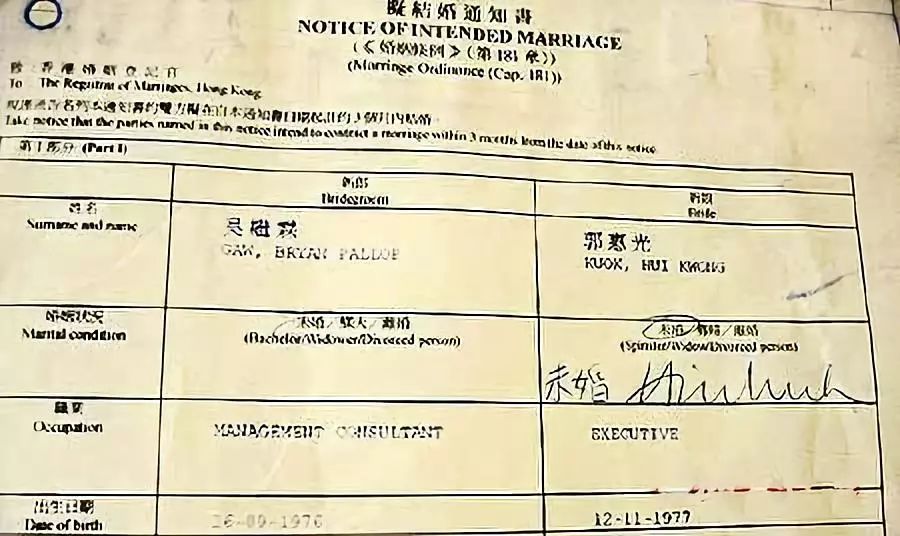 擬結婚通知書
NOTICE OF INTENDED MARRIAGE
(《婚姻條例》(第181章))
(Marriage Ordinance (Cap. 181))
致：香港婚姻登記官
To The Registrar of Marriages, Hong Kong
Take notice that the parties named in this notice intend to contract a marriage within 3 months from the date of this notice
第1部分 (Part I)
新郎
Bridegroom
新娘
Bride
姓名
Surname and name
吳繼
GAW, BRYAN PALLOP
郭惠光
KUOK, HUI KWONG
婚姻狀況
Marital condition
未婚／鰥夫／離婚
(Bachelor/Widower/Divorced person)
未婚／寡婦／離婚
(Spinster/Widow/Divorced person)
未婚
職業
Occupation
MANAGEMENT CONSULTANT
EXECUTIVE
出生日期
Date of birth
26-09-1976
12-11-1977